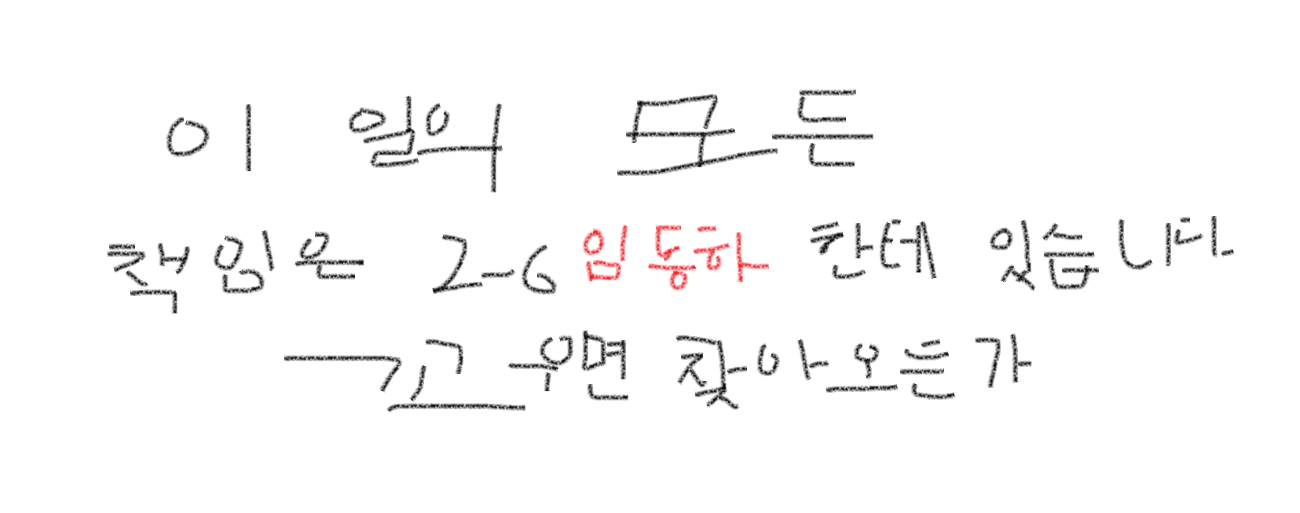 이 일의 모든
책임은 2-6 임동하 한테 있습니다
꼬우면 찾아오든가